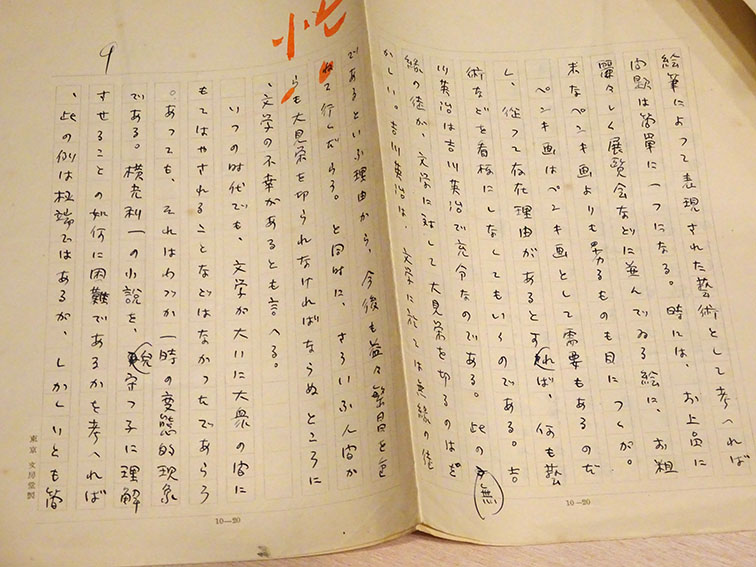 絵筆によつて表現された藝術として考へれば
問題は簡單に一つになる。時には、お上品に
麗々しく展覧会などに並んでゐる絵に、お粗
末なペンキ画よりも劣るものも目につくが。
ペンキ画はペンキ画として需要もあるのだ
し、從つて存在理由があるとすれば、何も藝
術などを看板にしなくてもいゝのである。吉
川英治は吉川英治で充分なのである。此の無
縁の徒が、文学に対して大見栄を切るのはを
かしい。吉川英治は、文学に於ては無縁の徒
であるといふ理由から、今後も益々繁昌を
て行くだらう。と同時に、さういふ人間か
らも大見栄を切られなければならぬところに
、文学の不幸があるとも言へる。
いつの時代でも、文学が大いに大衆の間に
もてはやされることなどはなかつたであらう
。あつても、それはわづか一時の変態的現象
である。横光利一の小説を、守つ子に理解
させることの如何に困難であるかを考へれば
、此の例は極端ではあるが、しかしいとも簡
9
10—20
10—20
東京 文房堂製